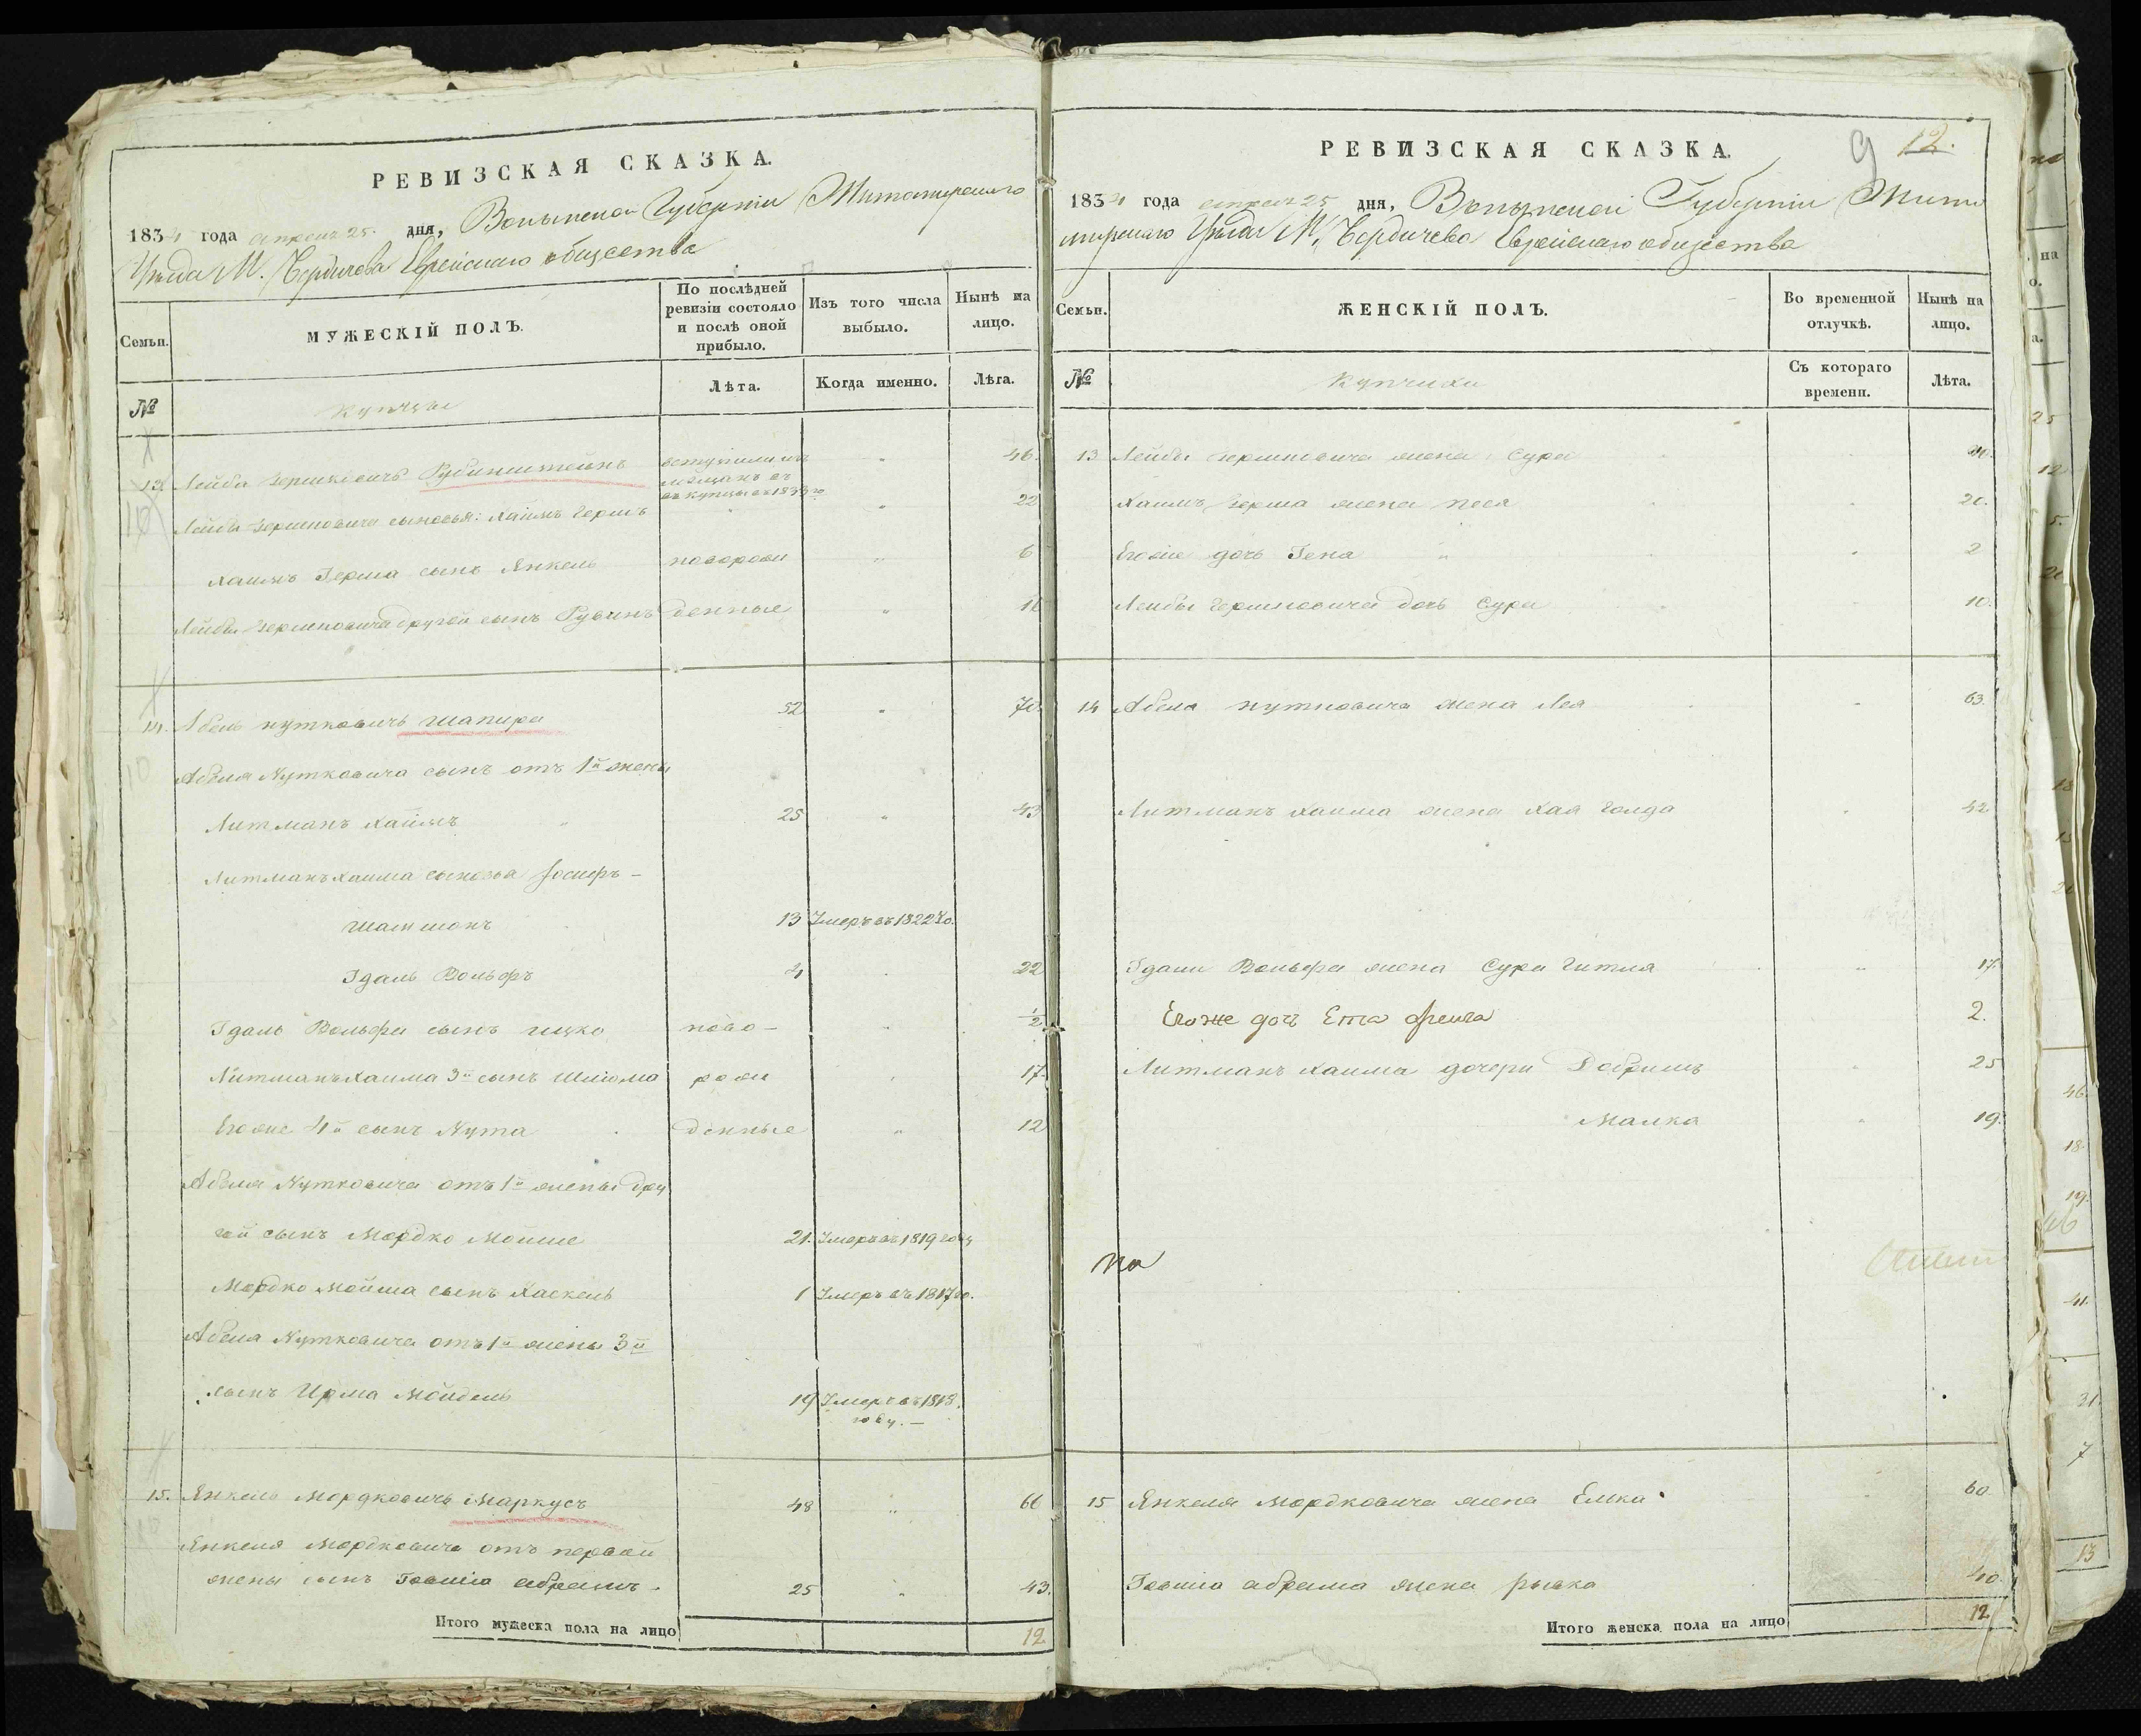 РЕВИЗСКАЯ СКАЗКА.
1834 года апреля 25. дня, Волынской Губерніи Житомирскаго
Уѣзда М. Бердичева Еврейскаго общества
Семьи.
МУЖЕСКІЙ ПОЛЪ.
По послѣдней ревизіи состояло и послѣ оной прибыло.
Изъ того числа выбыло.
Нынѣ на лицо.
№
купцы
Лѣта.
Когда именно.
Лѣта.
13. Лейба Гершковичъ Рубинштейнъ вступили изъ мещанъ въ купцы въ 1833 го " 46.
10
Лейбы Гершковича сыновья: Хаимъ Гершъ " 22
Хаимъ Герша сынъ Янкель новорож " 6
Лейбы Гершковича другой сынъ Рувинъ денные " 16
14. Абель Нутковичъ Шапира 52 " 70.
10
Абеля Нутковича сынъ отъ 1й жены
Литманъ Хаимъ 25 " 43
Литманъ Хаима сыновья Іосифъ –
Шамшонъ 13 Умеръ въ 1822 го.
Гдаль Вольфъ 4 22
Гдаль Вольфа сынъ Ицко ново – 1/2
Литманъ Хаима 3й сынъ Шліома рож 17.
Егоже 4й сынъ Нута денные " 12
Абеля Нутковича отъ 1й жены дру
гой сынъ Мордко Мойше 21. Умеръ въ 1819 году
Мордко Мойша сынъ Хаскель 1 Умеръ въ 1817 го.
Абеля Нутковича отъ 1й жены 3й
сынъ Ирма Мойдель 19 Умеръ въ 1818. году. –
15. Янкель Мордковичъ Маркусъ 48 " 66
10
Янкеля Мордковича отъ первой
жены сынъ Іовшіа Абрамъ. 25 " 43.
Итого мужеска пола на лицо 12
РЕВИЗСКАЯ СКАЗКА.
9 12.
1834 года апреля 25 дня, Волынской Губерніи Жито
мирскаго Уѣзда М. Бердичева Еврейскаго общества
Семьи.
ЖЕНСКІЙ ПОЛЪ.
Во временной отлучкѣ.
Нынѣ на лицо.
№
купчихи
Съ котораго времени.
Лѣта.
13 Лейбы Гершковича жена Сура
Хаимъ Герша жена Песя 20.
Егоже дочь Гена " 2
Лейбы Гершковича дочь Сура 10.
14 Абеля Нутковича жена Лея " 63.
Литманъ Хаима жена Хая Голда " 42
Гдаля Вольфа жена Сура Гитля " 17.
Егоже дочь Ента Фрейга 2.
Литманъ Хаима дочери Добришъ " 25
Малка " 19.
на
15 Янкеля Мордковича жена Елка 60.
Іовшіа Абрама жена Рывка 40.
Итого женска пола на лицо 12